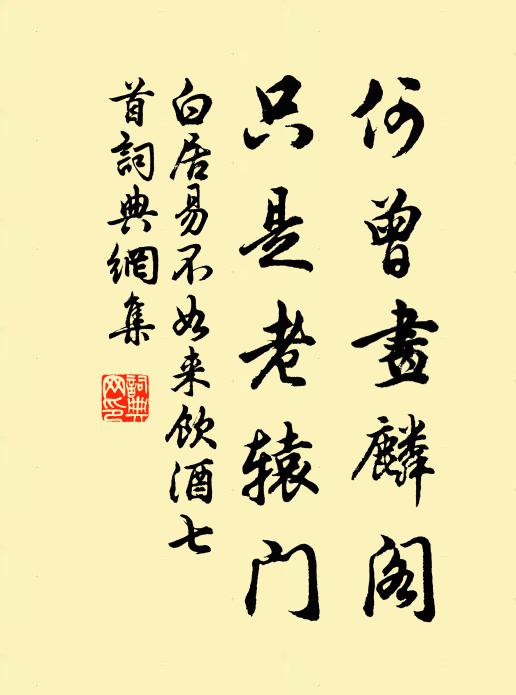 何曾畫麟阁
只是老辕门
白居易不如来飲酒七
首詞典網集
詞典
网印